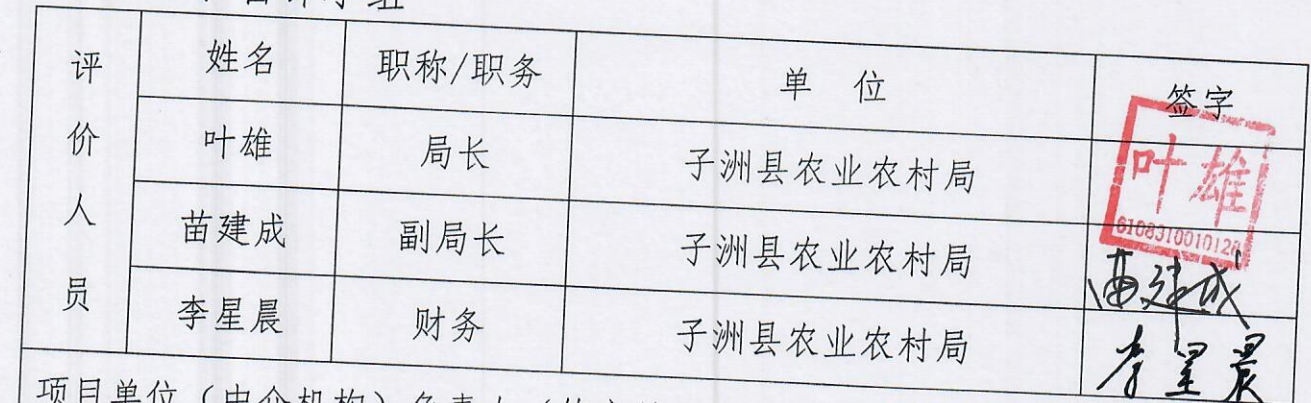 评价人员 姓名 职称/职务 单 位 签字
叶雄 局长 子洲县农业农村局 叶雄
6108310010128
苗建成 副局长 子洲县农业农村局 苗建成
李星晨 财务 子洲县农业农村局 李星晨
项目单位（中介机构）负责人